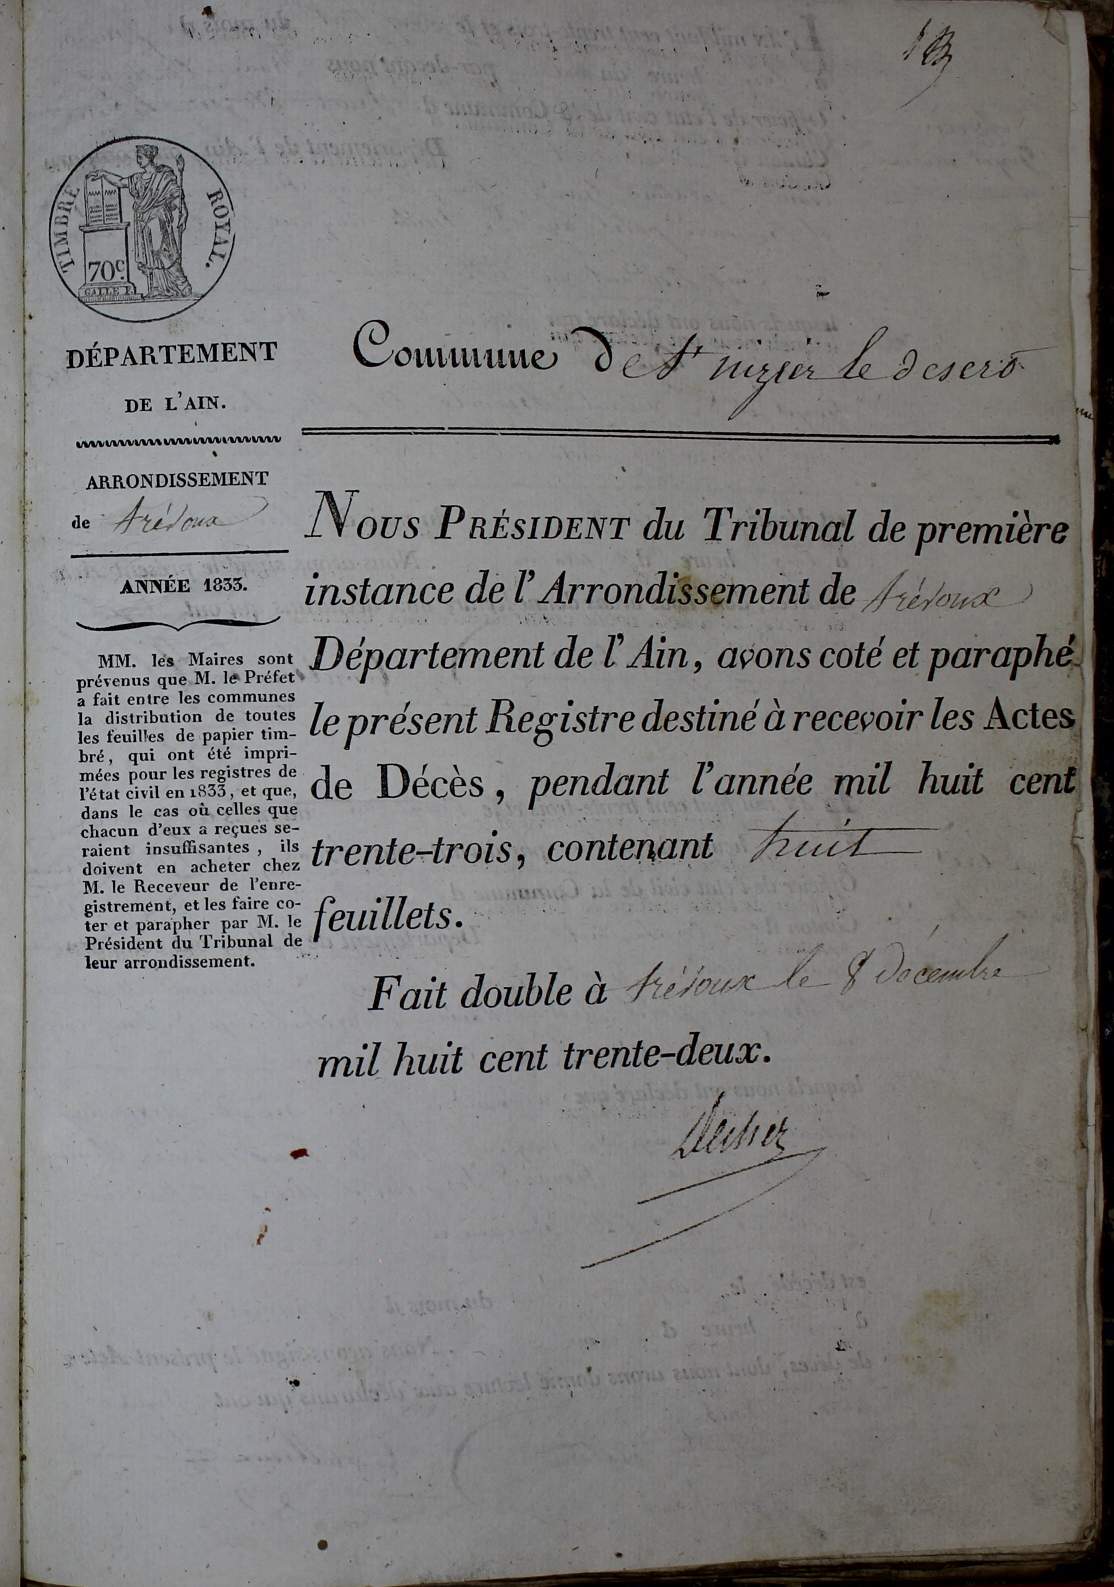 TIMBRE ROYAL.
70c.
GALLE F.
DÉPARTEMENT
DE L'AIN.
ARRONDISSEMENT
de trévoux
ANNÉE 1833.
MM. les Maires sont
prévenus que M. le Préfet
a fait entre les communes
la distribution de toutes
les feuilles de papier tim-
bré, qui ont été impri-
mées pour les registres de
l'état civil en 1833, et que,
dans le cas où celles que
chacun d'eux a reçues se-
raient insuffisantes, ils
doivent en acheter chez
M. le Receveur de l'enre-
gistrement, et les faire co-
ter et parapher par M. le
Président du Tribunal de
leur arrondissement.
Commune de St nizier le desert
NOUS PRÉSIDENT du Tribunal de première
instance de l'Arrondissement de trévoux
Département de l'Ain, avons coté et paraphé
le présent Registre destiné à recevoir les Actes
de Décès, pendant l'année mil huit cent
trente-trois, contenant huit
feuillets.
Fait double à trévoux le 8 décembre
mil huit cent trente-deux.